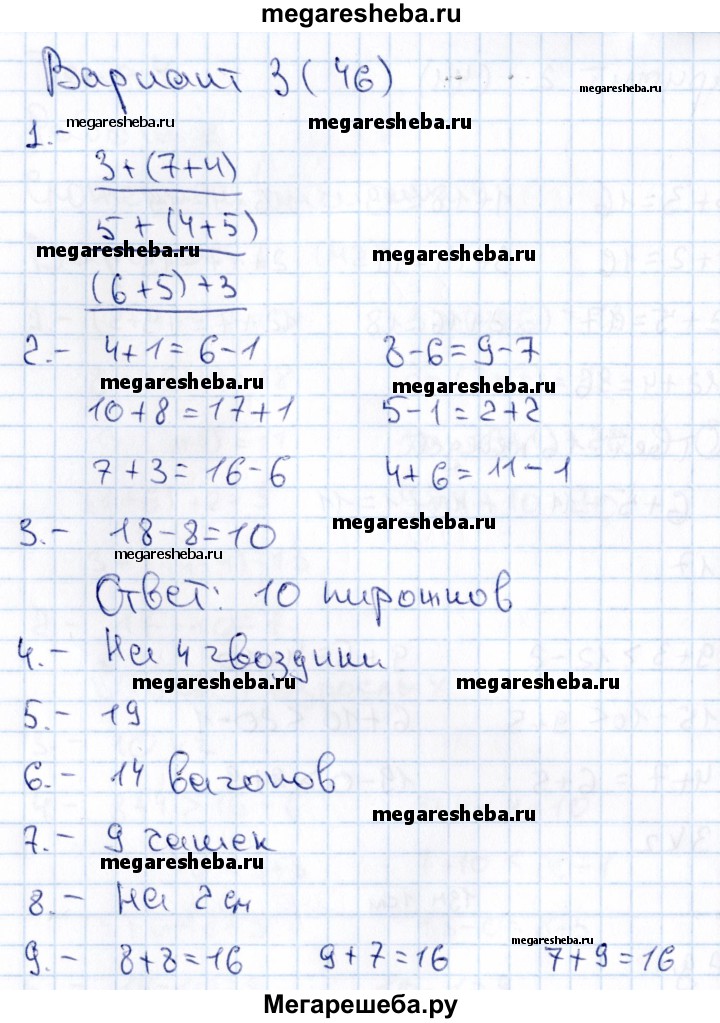 megaresheba.ru
Вариант 3 (46)
megaresheba.ru
1.-
megaresheba.ru
megaresheba.ru
3+(7+4)
5+(4+5)
megaresheba.ru
megaresheba.ru
(6+5)+3
2.- 4+1=6-1 8-6=9-7
megaresheba.ru
megaresheba.ru
10+8=17+1 5-1=2+2
7+3=16-6 4+6=11-1
megaresheba.ru
3.- 18-8=10
megaresheba.ru
Ответ: 10 пирожков
4.- На 4 гвоздики
megaresheba.ru
megaresheba.ru
5.- 19
6.- 14 вагонов
megaresheba.ru
7.- 9 чашек
megaresheba.ru
8.- На 2 см
megaresheba.ru
9.- 8+8=16 9+7=16 7+9=16
Мегарешеба.ру